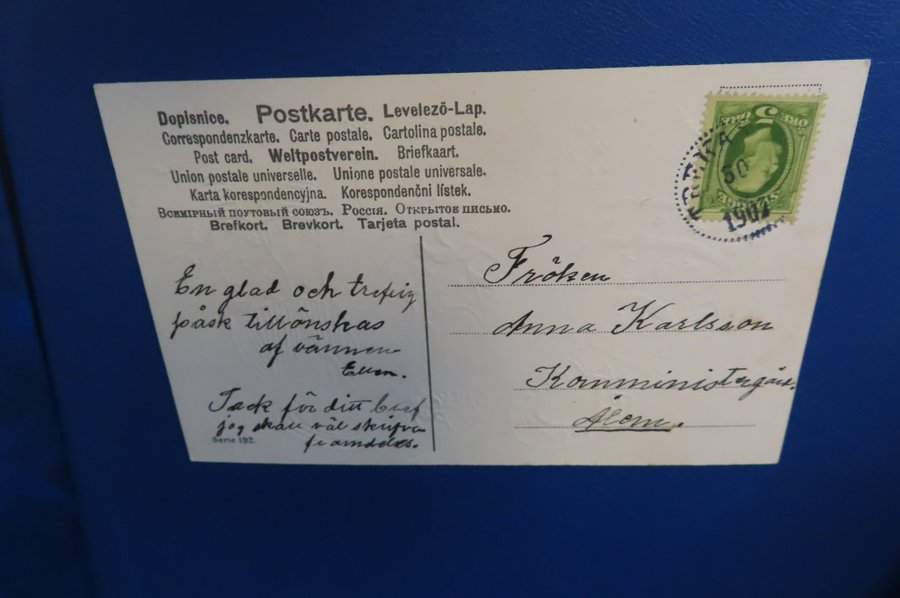 Dopisnice. Postkarte. Levelező-Lap.
Correspondenzkarte. Carte postale. Cartolina postale.
Post card. Weltpostverein. Briefkaart.
Union postale universelle. Unione postale universale.
Karta korespondencyjna. Korespondenční lístek.
Всемірный поутовый союзъ. Россія. Открытое письмо.
Brefkort. Brevkort. Tarjeta postal.
En glad och trefvig
påsk tillönskas
af vännen
Ellen.
Tack för ditt bref
jag skall väl skrifva
framdeles.
Serie 192.
Fröken
Anna Karlsson
Komministergård.
Ålem.
5
30
1907